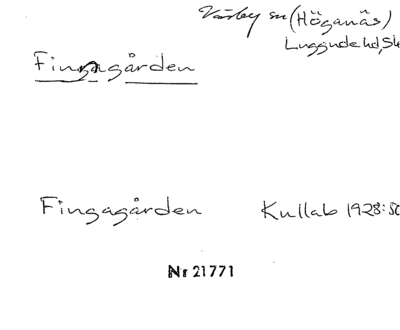 Väsby sn (Höganäs)
Luggude hd, Sk
Fingagården
Fingagården Kullab 1928:50
Nr 21771